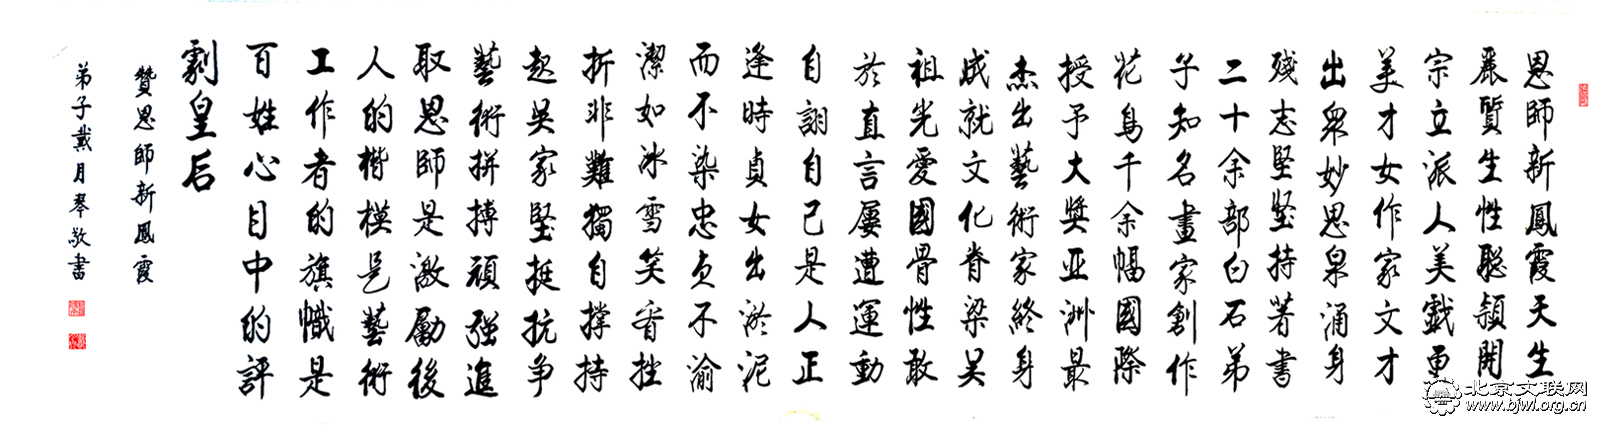 恩師新鳳霞天生
麗質生性聰穎開
宗立派人美戲更
美才女作家文才
出眾妙思泉涌身
殘志堅堅持著書
二十余部白石弟
子知名畫家創作
花鳥千余幅國際
授予大獎亚洲最
杰出藝術家終身
成就文化脊梁吴
祖光愛國骨性敢
於直言屢遭運動
自詡自己是人正
逢時貞女出淤泥
而不染忠贞不渝
潔如冰雪笑看挫
折非難獨自撑持
起吴家堅挺抗争
藝術拼搏頑强進
取恩師是激勵後
人的楷模是藝術
工作者的旗幟是
百姓心目中的評
劇皇后
贊恩師新鳳霞
弟子戴月琴敬書
北京文联网
www.bjwl.org.cn